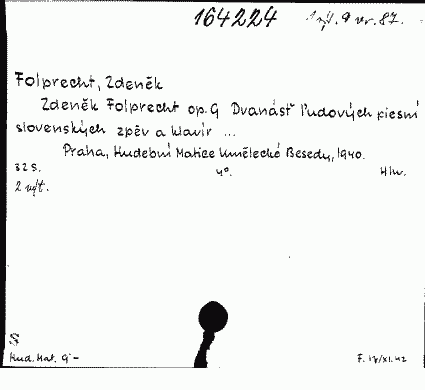 164224
Folprecht, Zdeněk
Zdeněk Folprecht op. 9 Dvanásť ľudových piesní
slovenských zpěv a klavír ...
Praha, Hudební Matice Umělecké Besedy, 1940.
32 s. 4°. Hlv.
2 výt.
S
Hud. Mat. 9 -